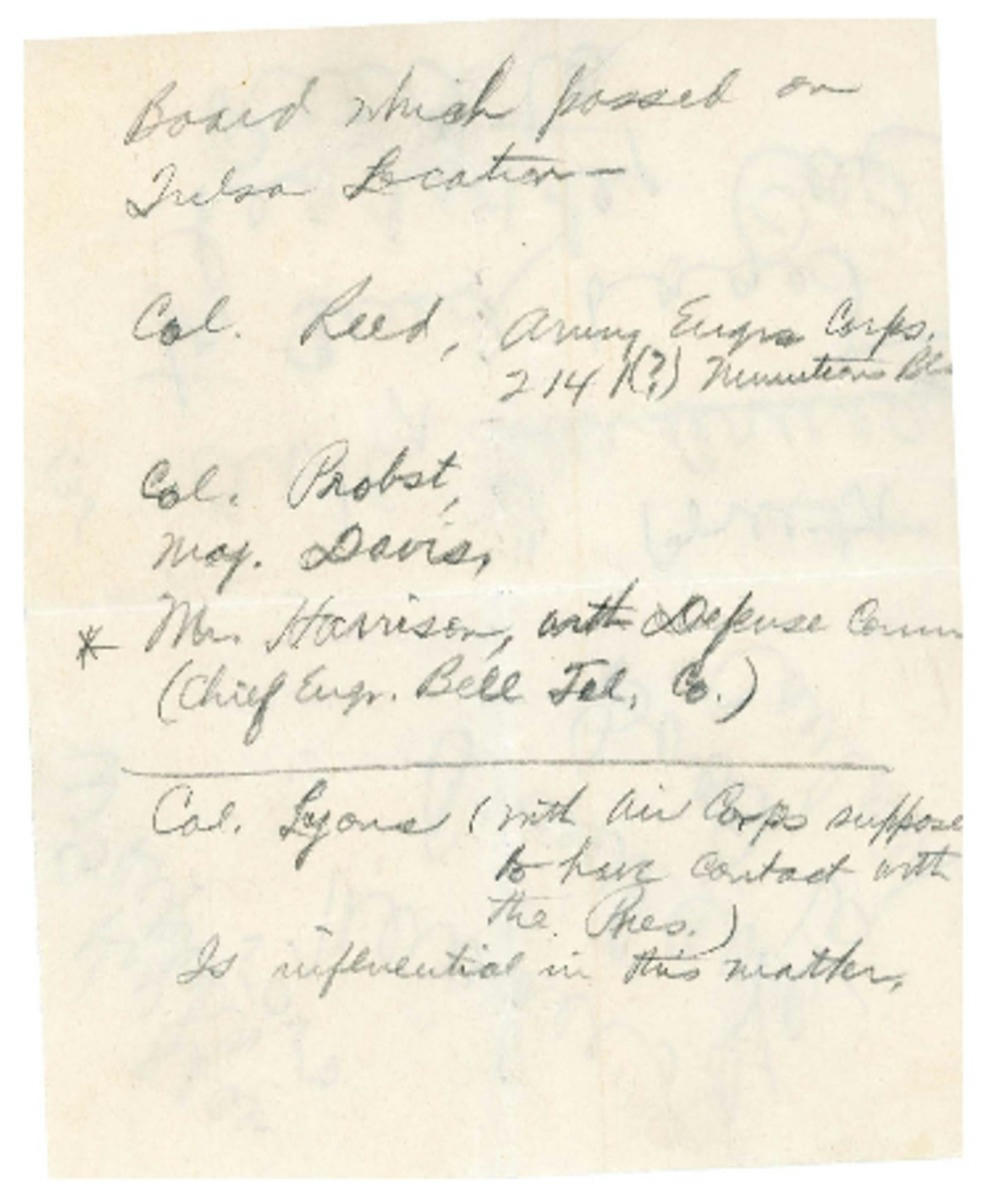 Board which passed on
Tulsa Location—
Col. Reed, Army Engrs Corps.
214 (?) Munitions Bl
Col. Probst,
Maj. Davis,
* Mr. Harrison, with Defense Comm
(Chief Engr. Bell Tel. Co.)
Col. Lyons (with Air Corps suppose
to have contact with
the Pres.)
Is influential in this matter.